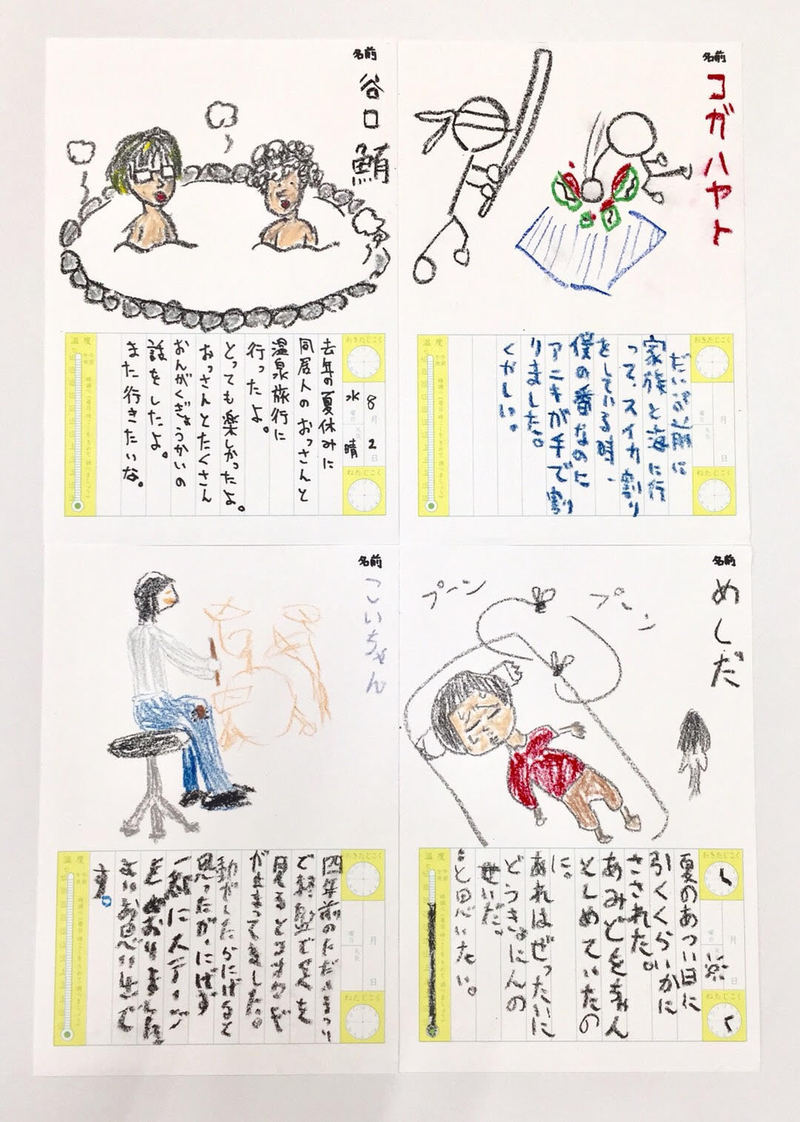 名前
谷口鮪
おきたじこく
8月2日
水曜日
天気 晴
ねたじこく
去年の夏休みに
同居人のおっさんと
温泉旅行に
行ったよ。
とっても楽しかったよ。
おっさんとたくさん
おんがくぎょうかいの
話をしたよ。
また行きたいな。
温度
名前
コガハヤト
おきたじこく
月 日
曜日
天気
ねたじこく
だいぶ前に
家族と海に行
って、スイカ割り
をしている時、
僕の番なのに
アニキが手で割
りました。
くやしい。
温度
名前
こいちゃん
おきたじこく
月 日
曜日
天気
ねたじこく
四年前の
が止まってました。
動かしたらにげると
思ったが、にげず
一緒にステージ
をおりました
よいお思い出で
す。
温度
名前
めしだ
プーン
プーン
おきたじこく
月 日
曜日
ねたじこく
夏のあつい日に
引くくらいかに
さされた。
あみどをちゃん
としめていたの
に。
あれはぜったいに
どうきょにんの
せいだ。
と思いたい。
温度